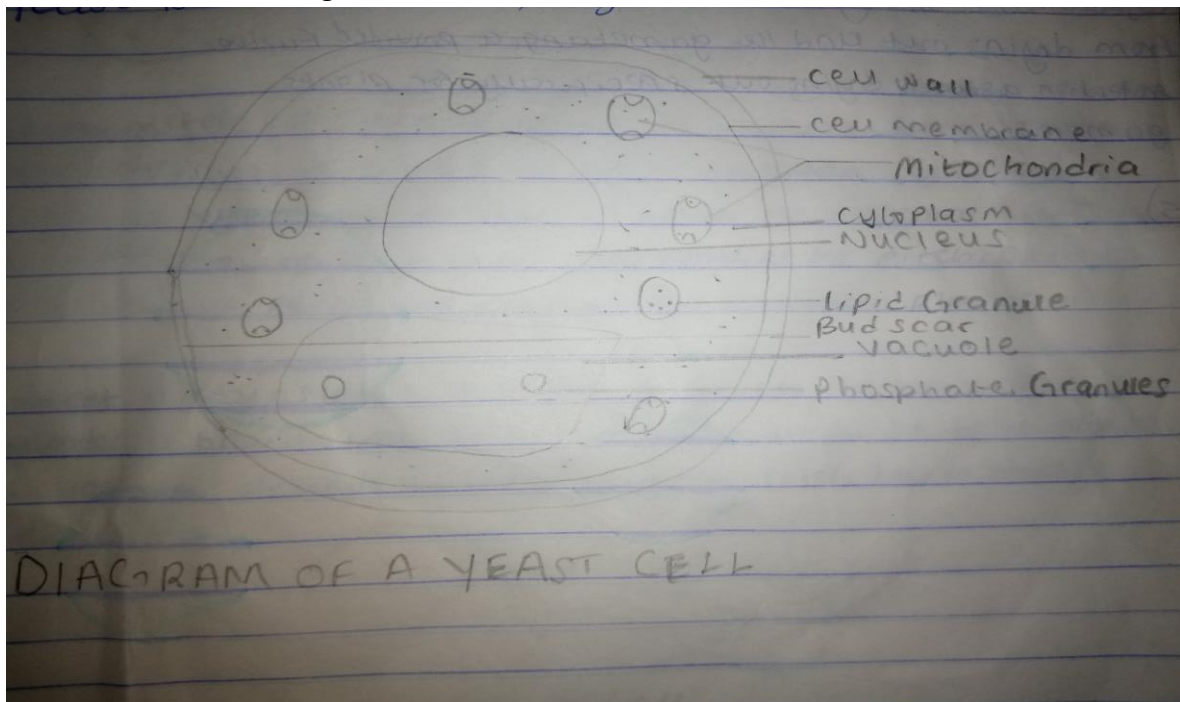 cell wall
cell membrane
Mitochondria
cytoplasm
Nucleus
lipid Granule
Bud scar
vacuole
phosphate Granules
DIAGRAM OF A YEAST CELL